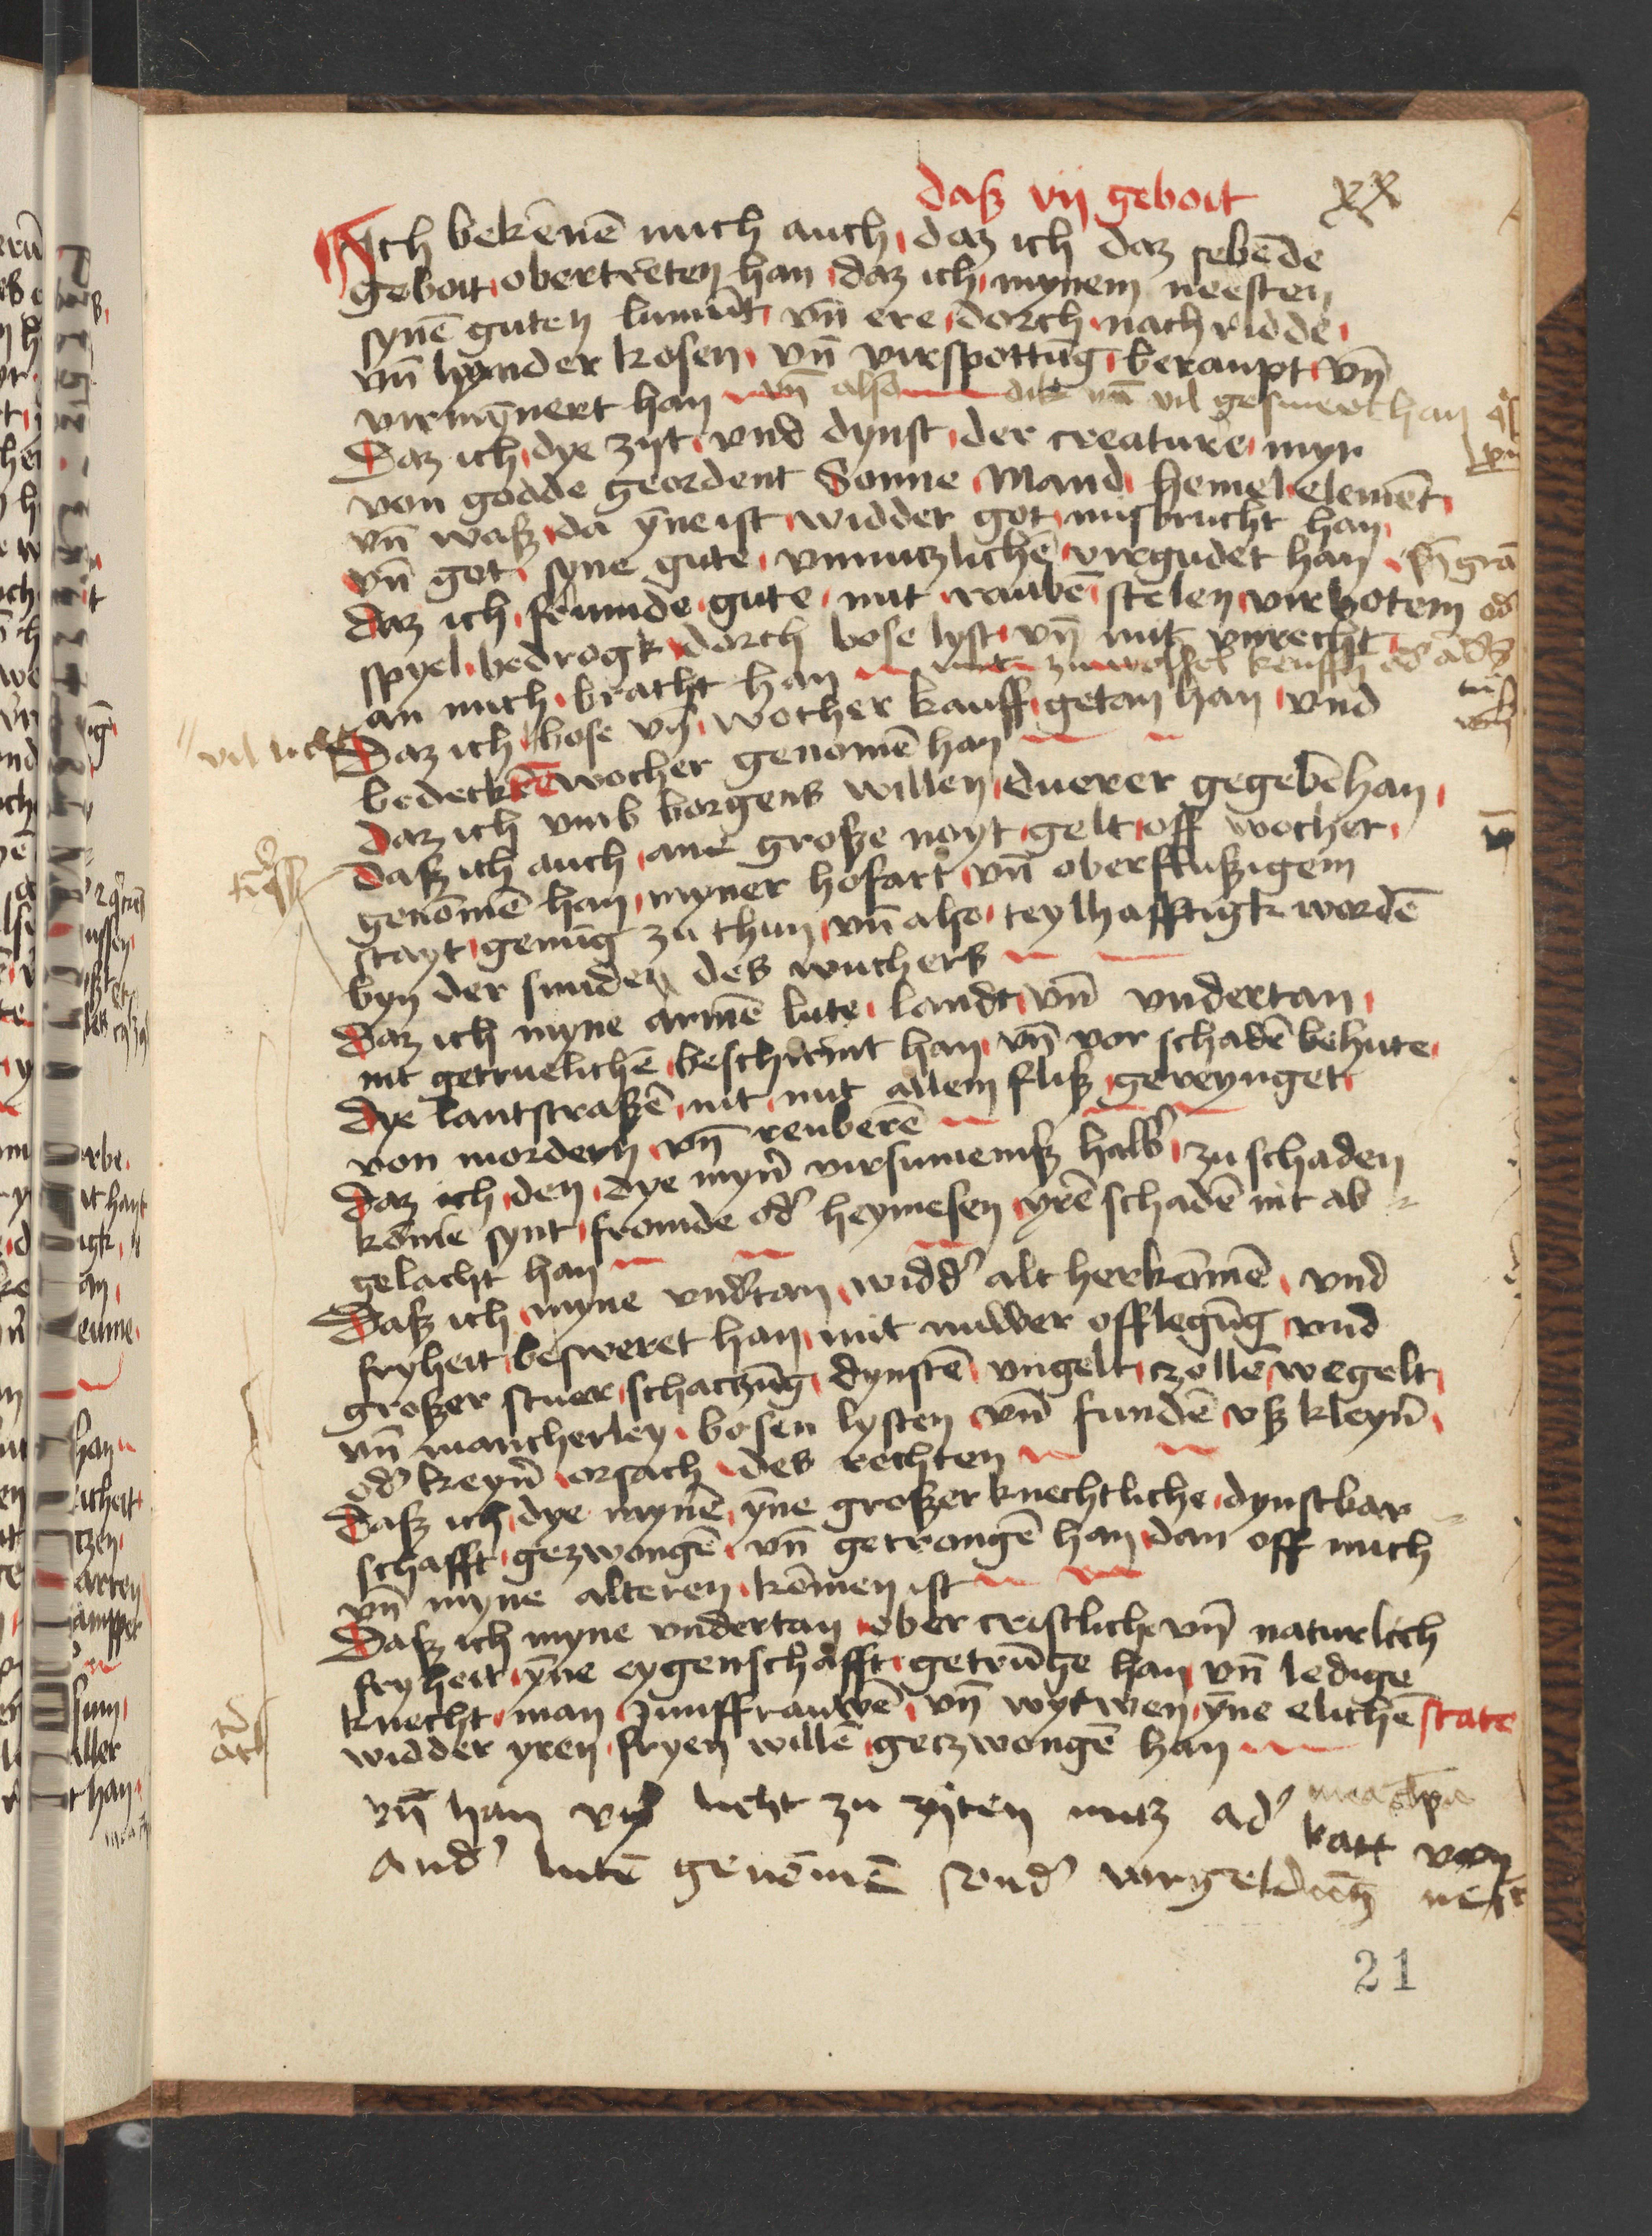 daß vij geboit xx
Ich bekēnē mich auch daz ich daz sebēde
geboit obertreten han daz ich mynem neesten
synē guten lumūt vn̄ ere dorch nach ridde
vn̄ hynder kosen vn̄ virspottūg beraupt vn̄
virmynert han vn̄ also dik vn̄ vil geswert han
Daz ich dye zyt vnd dynst der creature myr
von godde geordent Sonne Mand hemel elemēt
vn̄ waß da yne ist widder got misbrucht han
vn̄ got syne gute vnnutzlichē vregudet han
daz ich fremde gute mit raubē stelen virbotem
spyel bedrogk dorch bose lyst vn̄ mit vnrecht
an mich bracht han
vil licht Daz ich bose vn̄ wocher kauff getan han vnd
bedecktē wocher genomē han
daz ich vmb borgens willen duerer gegebē han
daß ich auch ane große noyt gelt off wocher
genōmē han myner hofart vn̄ oberflußigem
stayt genūg zu thun vn̄ also teylhafftigk wordē
byn der sunden des wuchers
Daz ich myne armē lute landt vn̄ vndertan
nit getruelichē beschirmt han vn̄ vor schadē behute
dye lantstraßē nit mit allem fliß gereynget
von mordern vn̄ reuberē
daz ich den dye myn̄ virsumeniß halb zu schaden
kōmē synt fromde od̄ heymesen yrē schadē nit ab
gelacht han
Daß ich myne vnd̄tan widd̄ alt herkōmē vnd
fryheit besweret han mit nuwer offlegūg vnd
großer stuer schatzūg dynstē vngelt zollē wegelt
vn̄ mancherley bosen lysten vn̄ fundē vß kleyn̄
od̄ keyn̄ orsach des rechten
Daß ich dye mynē yne großer knechtliche dynstbar
schafft gezwongē vn̄ getrongē han dan off mich
vn̄ myne alteren kōmen ist
Daß ich myne vndertan ober cristlich vn̄ naturlich
fryheit yne eygenschafft getrūge han vn̄ ledige
knecht man Junffrauwē vn̄ wytwen yne elichē state
widder yren fryen willē getzwongē han
vn̄ han vyl licht zu zyten nutz ad̄ katt von
and̄ lutē genōmē sond̄ vergeldūg
21